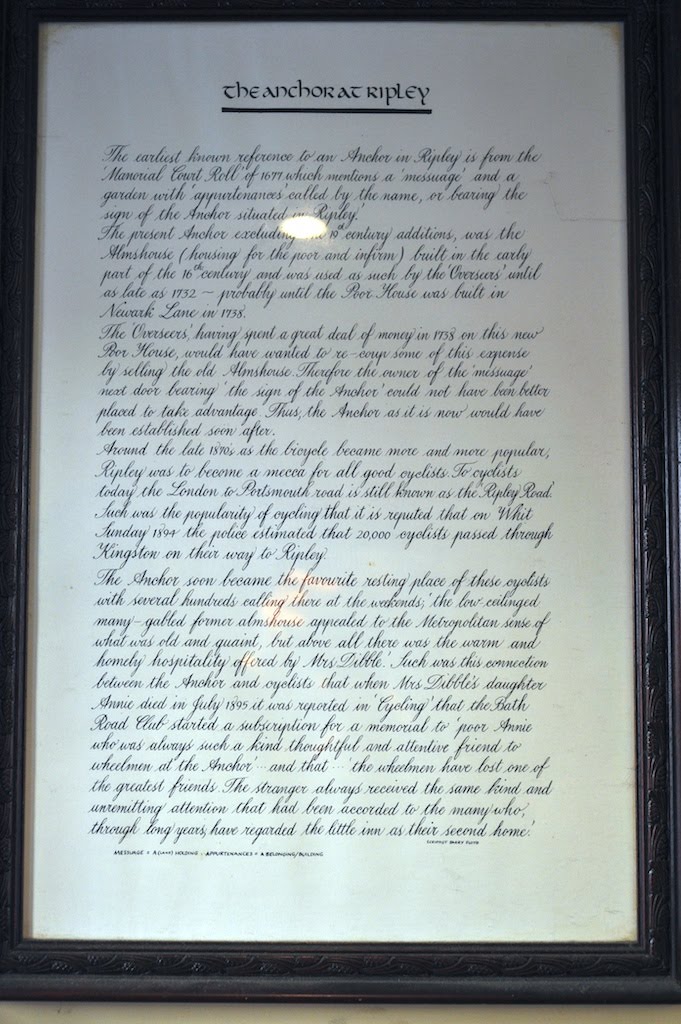 the anchor at ripley
The earliest known reference to an Anchor in Ripley is from the
'Manorial Court Roll' of 1677 which mentions a 'messuage' and a
garden with 'appurtenances' called by the name, or bearing the
sign of the Anchor situated in Ripley.'
The present Anchor excluding the 19th century additions, was the
Almshouse (housing for the poor and infirm) built in the early
part of the 16th century and was used as such by the 'Overseers' until
as late as 1732 ~ probably until the Poor House was built in
Newark Lane in 1738.
The 'Overseers', having spent a great deal of money in 1738 on this new
Poor House, would have wanted to re-coup some of this expense
by selling the old Almshouse. Therefore the owner of the 'missuage'
next door bearing 'the sign of the Anchor' could not have been better
placed to take advantage. Thus, the Anchor as it is now would have
been established soon after.
Around the late 1870's as the bicycle became more and more popular,
Ripley was to become a mecca for all good cyclists. To cyclists
today the London to Portsmouth road is still known as the 'Ripley Road'.
Such was the popularity of cycling that it is reputed that on 'Whit
Sunday' 1894 the police estimated that 20,000 cyclists passed through
Kingston on their way to Ripley.
The Anchor soon became the favourite resting place of these cyclists
with several hundreds calling there at the wekends; 'the low-ceilinged
many-gabled former almshouse appealed to the Metropolitan sense of
what was old and quaint, but above all there was the warm and
homely hospitality offered by Mrs Dibble.' Such was this connection
between the Anchor and cyclists that when Mrs Dibble's daughter
Annie died in July 1895 it was reported in 'Cycling' that the Bath
Road Club 'started a subscription for a memorial to 'poor Annie
who was always such a kind thoughtful and attentive friend to
wheelmen at the Anchor' ... and that ... 'the wheelmen have lost one of
the greatest friends. The stranger always received the same kind and
unremitting attention that had been accorded to the many who,
through long years, have regarded the little inn as their second home.'
MESSUAGE = A (LAND) HOLDING - APPURTENANCES = A BELONGING/BUILDING